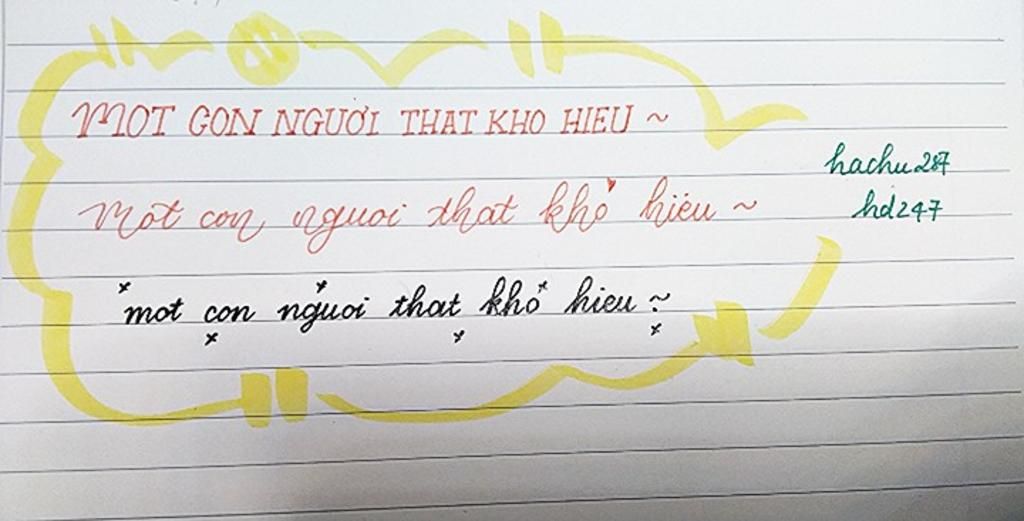 MOT CON NGUOI THAT KHO HIEU ~
Mot con nguoi that kho hieu ~
mot con nguoi that kho hieu ~
hachu287
hd247